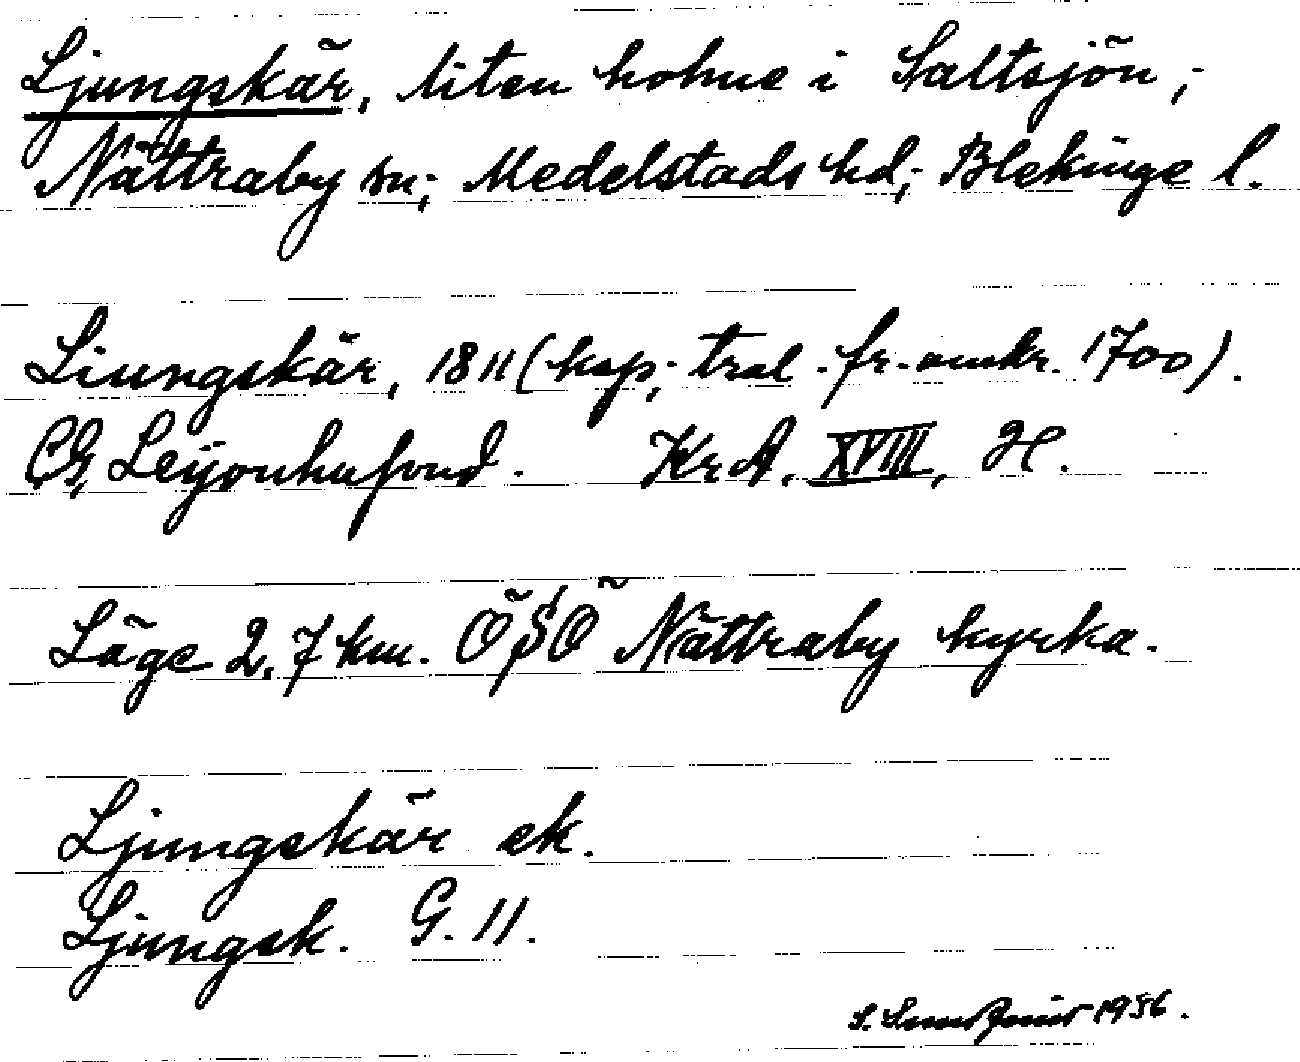 Ljungskär, liten holme i Saltsjön,
Nättraby sn; Medelstads hd; Blekinge l.
Liungskär, 1811 (ksp; tral. fr. omkr. 1700).
CG, Leijonhufvud. KrA. XVIII, H.
Läge 2,7 km. ÖSÖ Nättraby kyrka.
Ljungskär ek.
Ljungsk. G. 11.
S. 1956.